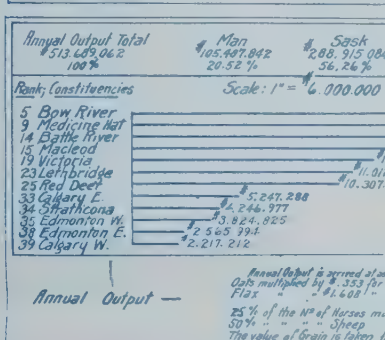 Annual Output Total Man Sask
$513.689.062 $105.487.842 $288.915.084
100% 20.52% 56.26%
Rank; Constituencies Scale: 1" = $6.000.000
5 Bow River
9 Medicine Hat
14 Battle River
15 Macleod
19 Victoria
23 Lethbridge $11.01
25 Red Deer $10.307.
33 Calgary E. $5.247.288
34 Strathcona $4.246.977
35 Edmonton W. $3.824.825
38 Edmonton E. $2.565.994
39 Calgary W. $2.217.212
Annual Output —
Annual Output is arrived at as
Oats multiplied by $.353 for
Flax " " $1.608 "
25% of the Nº of Horses mu
50% " " " " Sheep
The value of Grain is taken f